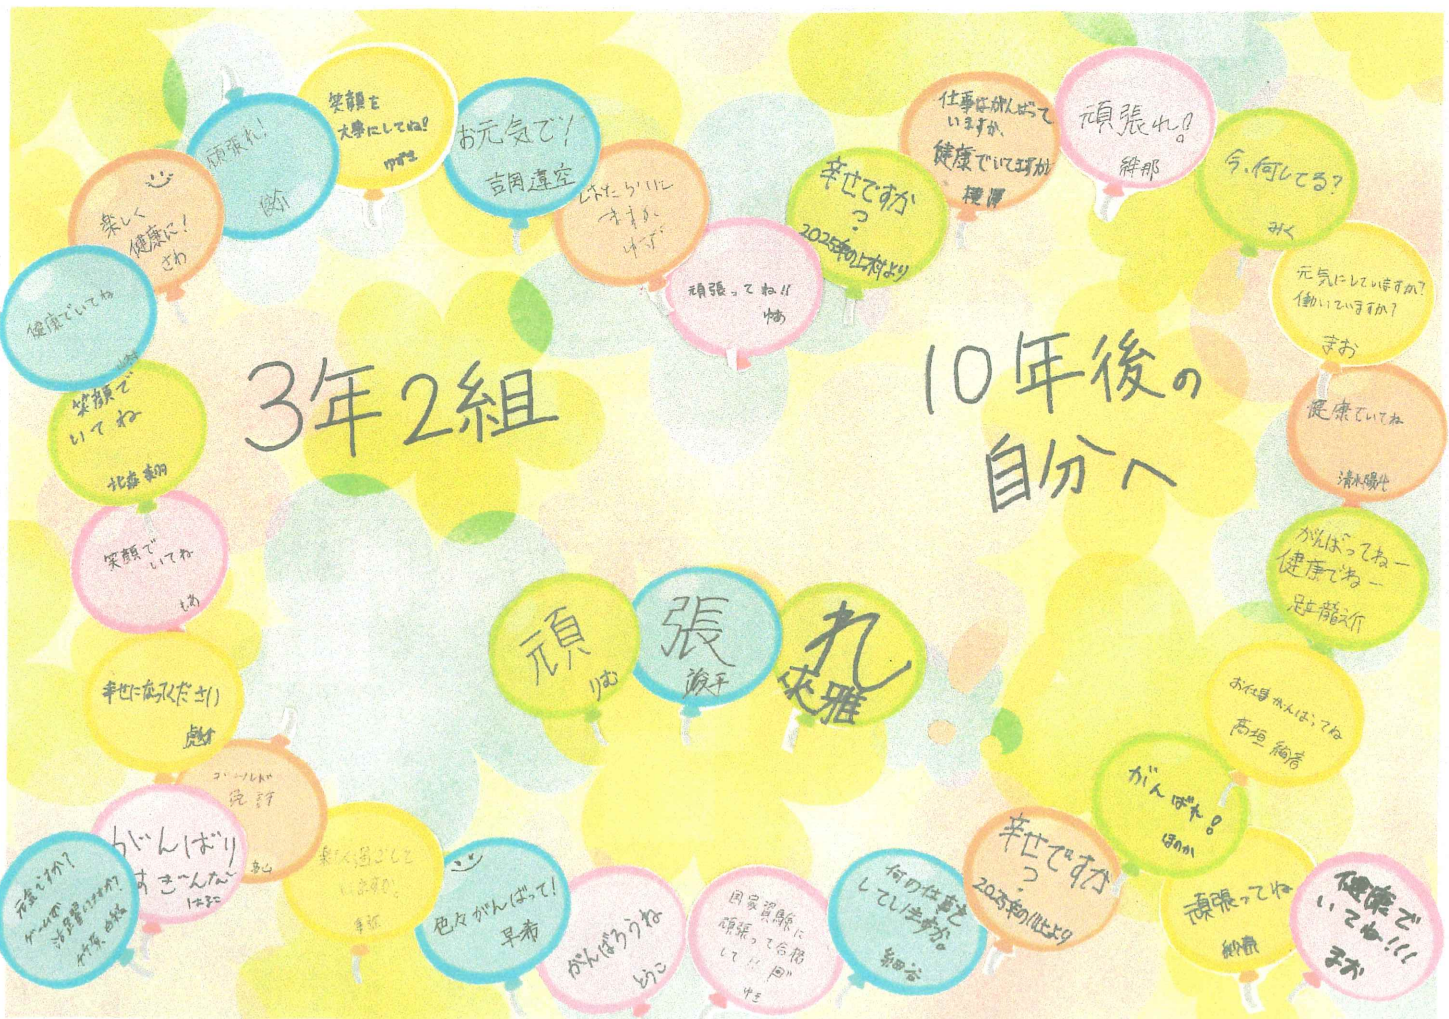 3年2組
10年後の
自分へ
頑
りむ
張
れ
來雅
頑張れ!
笑顔を
大事にしてね!
ゆずき
お元気で!
吉岡 蓮空
はたらいに
ますか
ゆず
頑張ってね!!
ゆあ
幸せですか
?
2025年の上村より
仕事はがんばって
いますか、
健康でいてますか
頑張れ!
絆那
今、何してる?
みく
元気にしていますか?
働いていますか?
まお
健康でいてね
清水陽
がんばってねー
健康でねー
足立龍之介
お仕事がんばってね
高垣 絢音
がんばれ!
ほのか
頑張ってね
健康で
いてね!!!
まお
幸せですか
?
何の仕事を
してしますか。
細谷
国家資験に
頑張って合格
して!!
ゆき
がんばろうね
とうこ
色々がんばって!
早希
楽しく過ごして
いますか。
がんばり
すぎんな
はるこ
元気ですか?
竹原
幸せになってください
笑顔で
いてね
もあ
笑顔で
いてね
健康でいてね
楽しく
健康に!
さわ